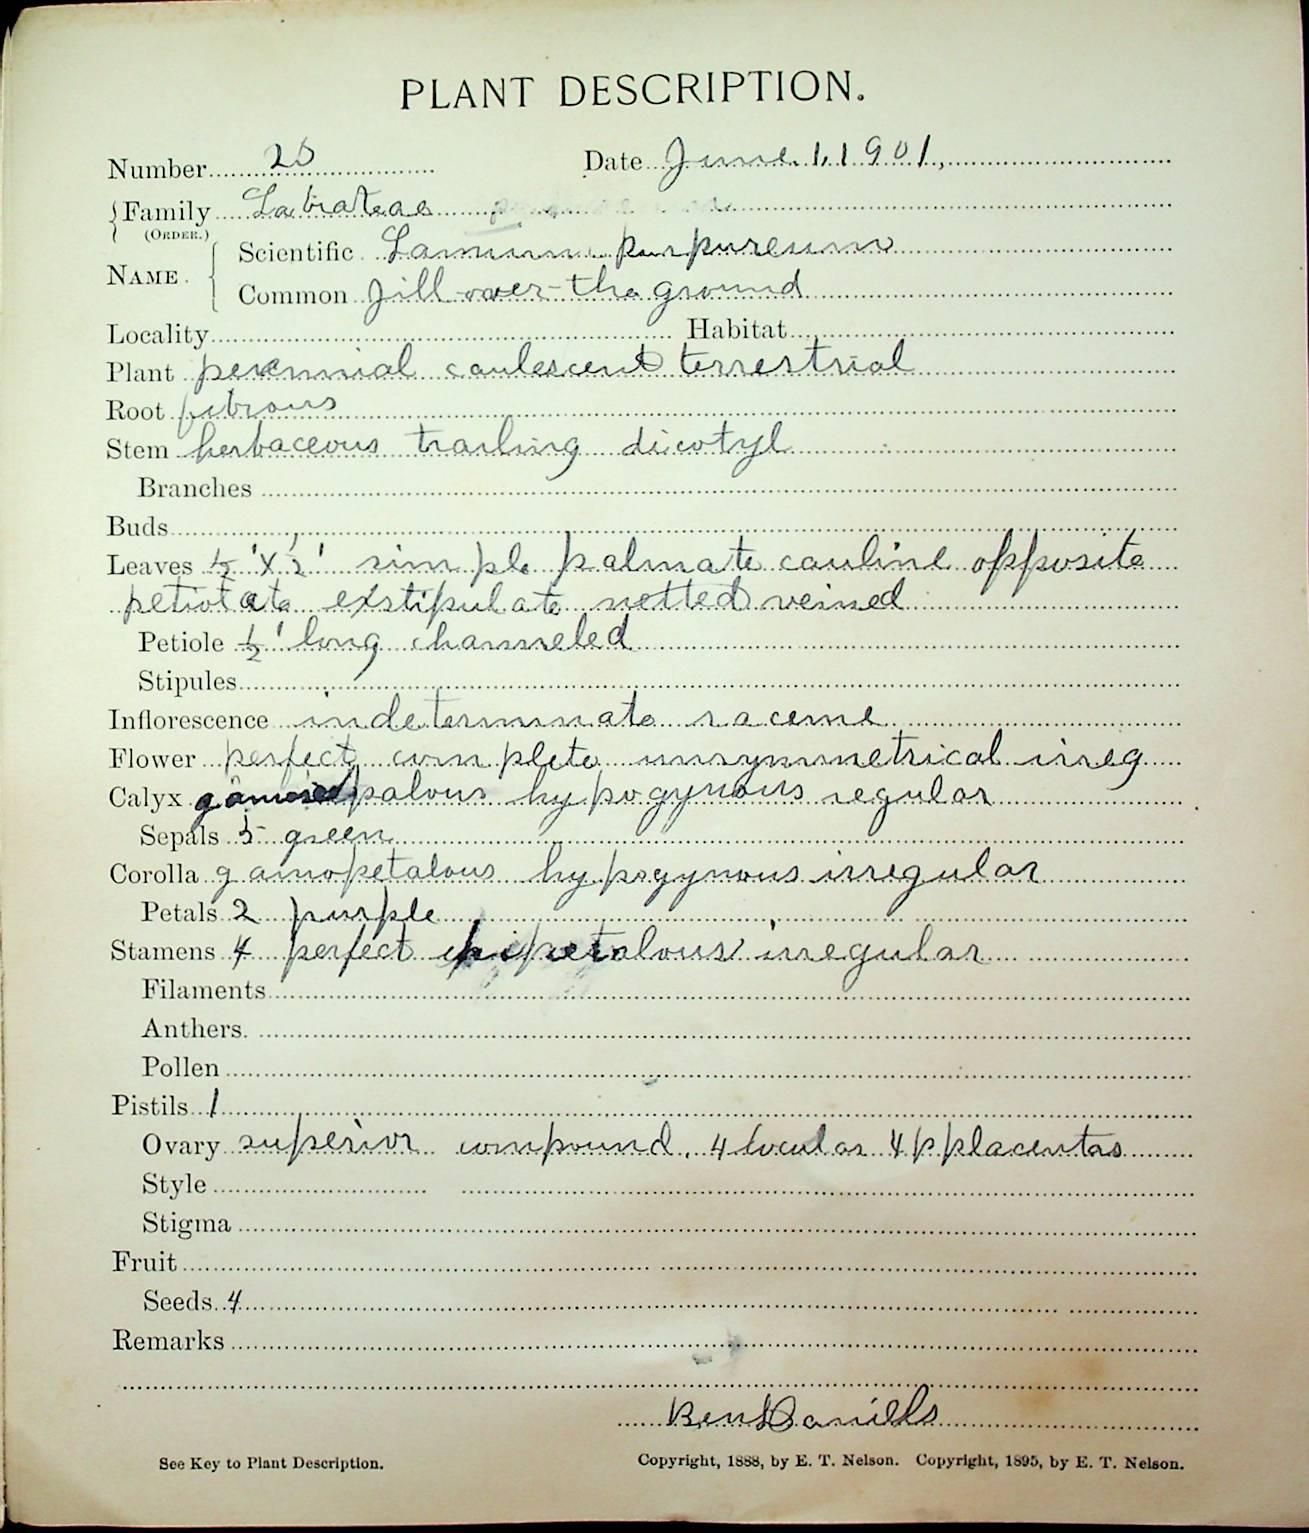 PLANT DESCRIPTION.
Number 25 Date June 1, 1901,
Family Labiateae
(ORDER.)
Scientific Lamium purpureum
NAME.
Common Jill-over-the ground
Locality Habitat
Plant perennial caulescent terrestrial
Root fibrous
Stem herbaceous trailing dicotyl
Branches
Buds
Leaves ½' x ½' simple palmate cauline opposite
petiolate exstipulate netted veined
Petiole ½' long channeled
Stipules
Inflorescence indeterminate raceme
Flower perfect complete unsymmetrical irreg
Calyx hypogynous regular
Sepals 5 green
Corolla gamopetalous hypogynous irregular
Petals 2 purple
Stamens 4 perfect epipetalous irregular
Filaments
Anthers.
Pollen
Pistils 1
Ovary superior compound. 4 locular 4 p placentas
Style
Stigma
Fruit
Seeds 4
Remarks
Ben Daniells
See Key to Plant Description. Copyright, 1888, by E. T. Nelson. Copyright, 1895, by E. T. Nelson.